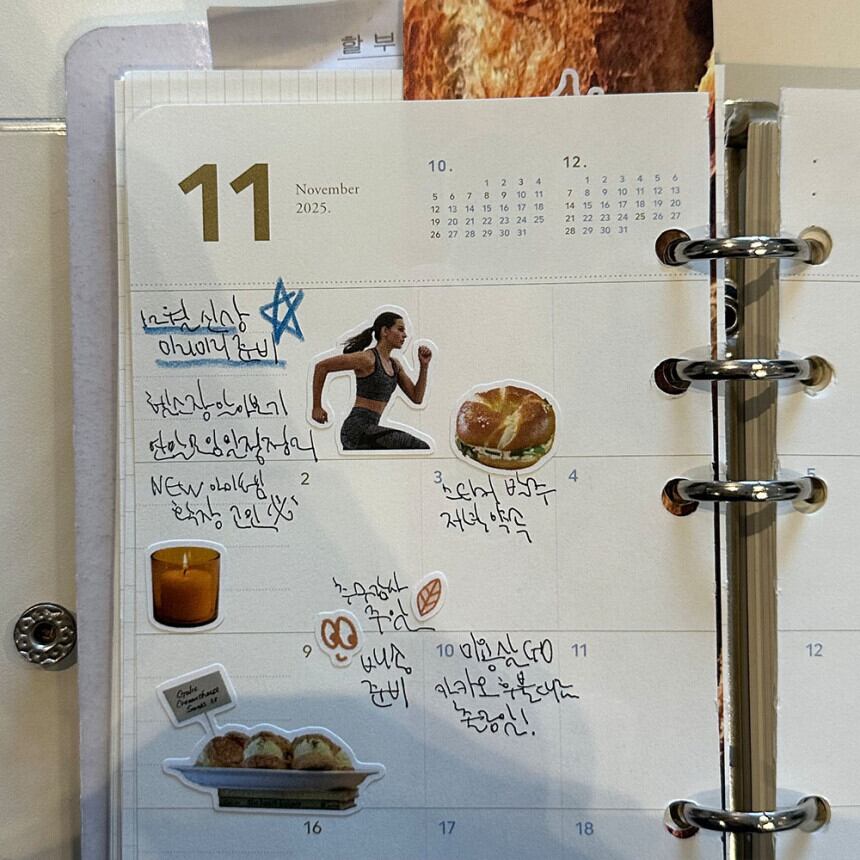 할부
11
November
2025.
10.
1 2 3 4
5 6 7 8 9 10 11
12 13 14 15 16 17 18
19 20 21 22 23 24 25
26 27 28 29 30 31
12.
1 2 3 4 5 6
7 8 9 10 11 12 13
14 15 16 17 18 19 20
21 22 23 24 25 26 27
28 29 30 31
12월 신상
미리미리 준비
연말모임일정정리
NEW 아이템
확장 고민
2
3
4
5
스티커 발주
저녁 약속
추수감사
주일
9
10
11
12
배송
준비
미용실 GO
카카오 후불
16
17
18